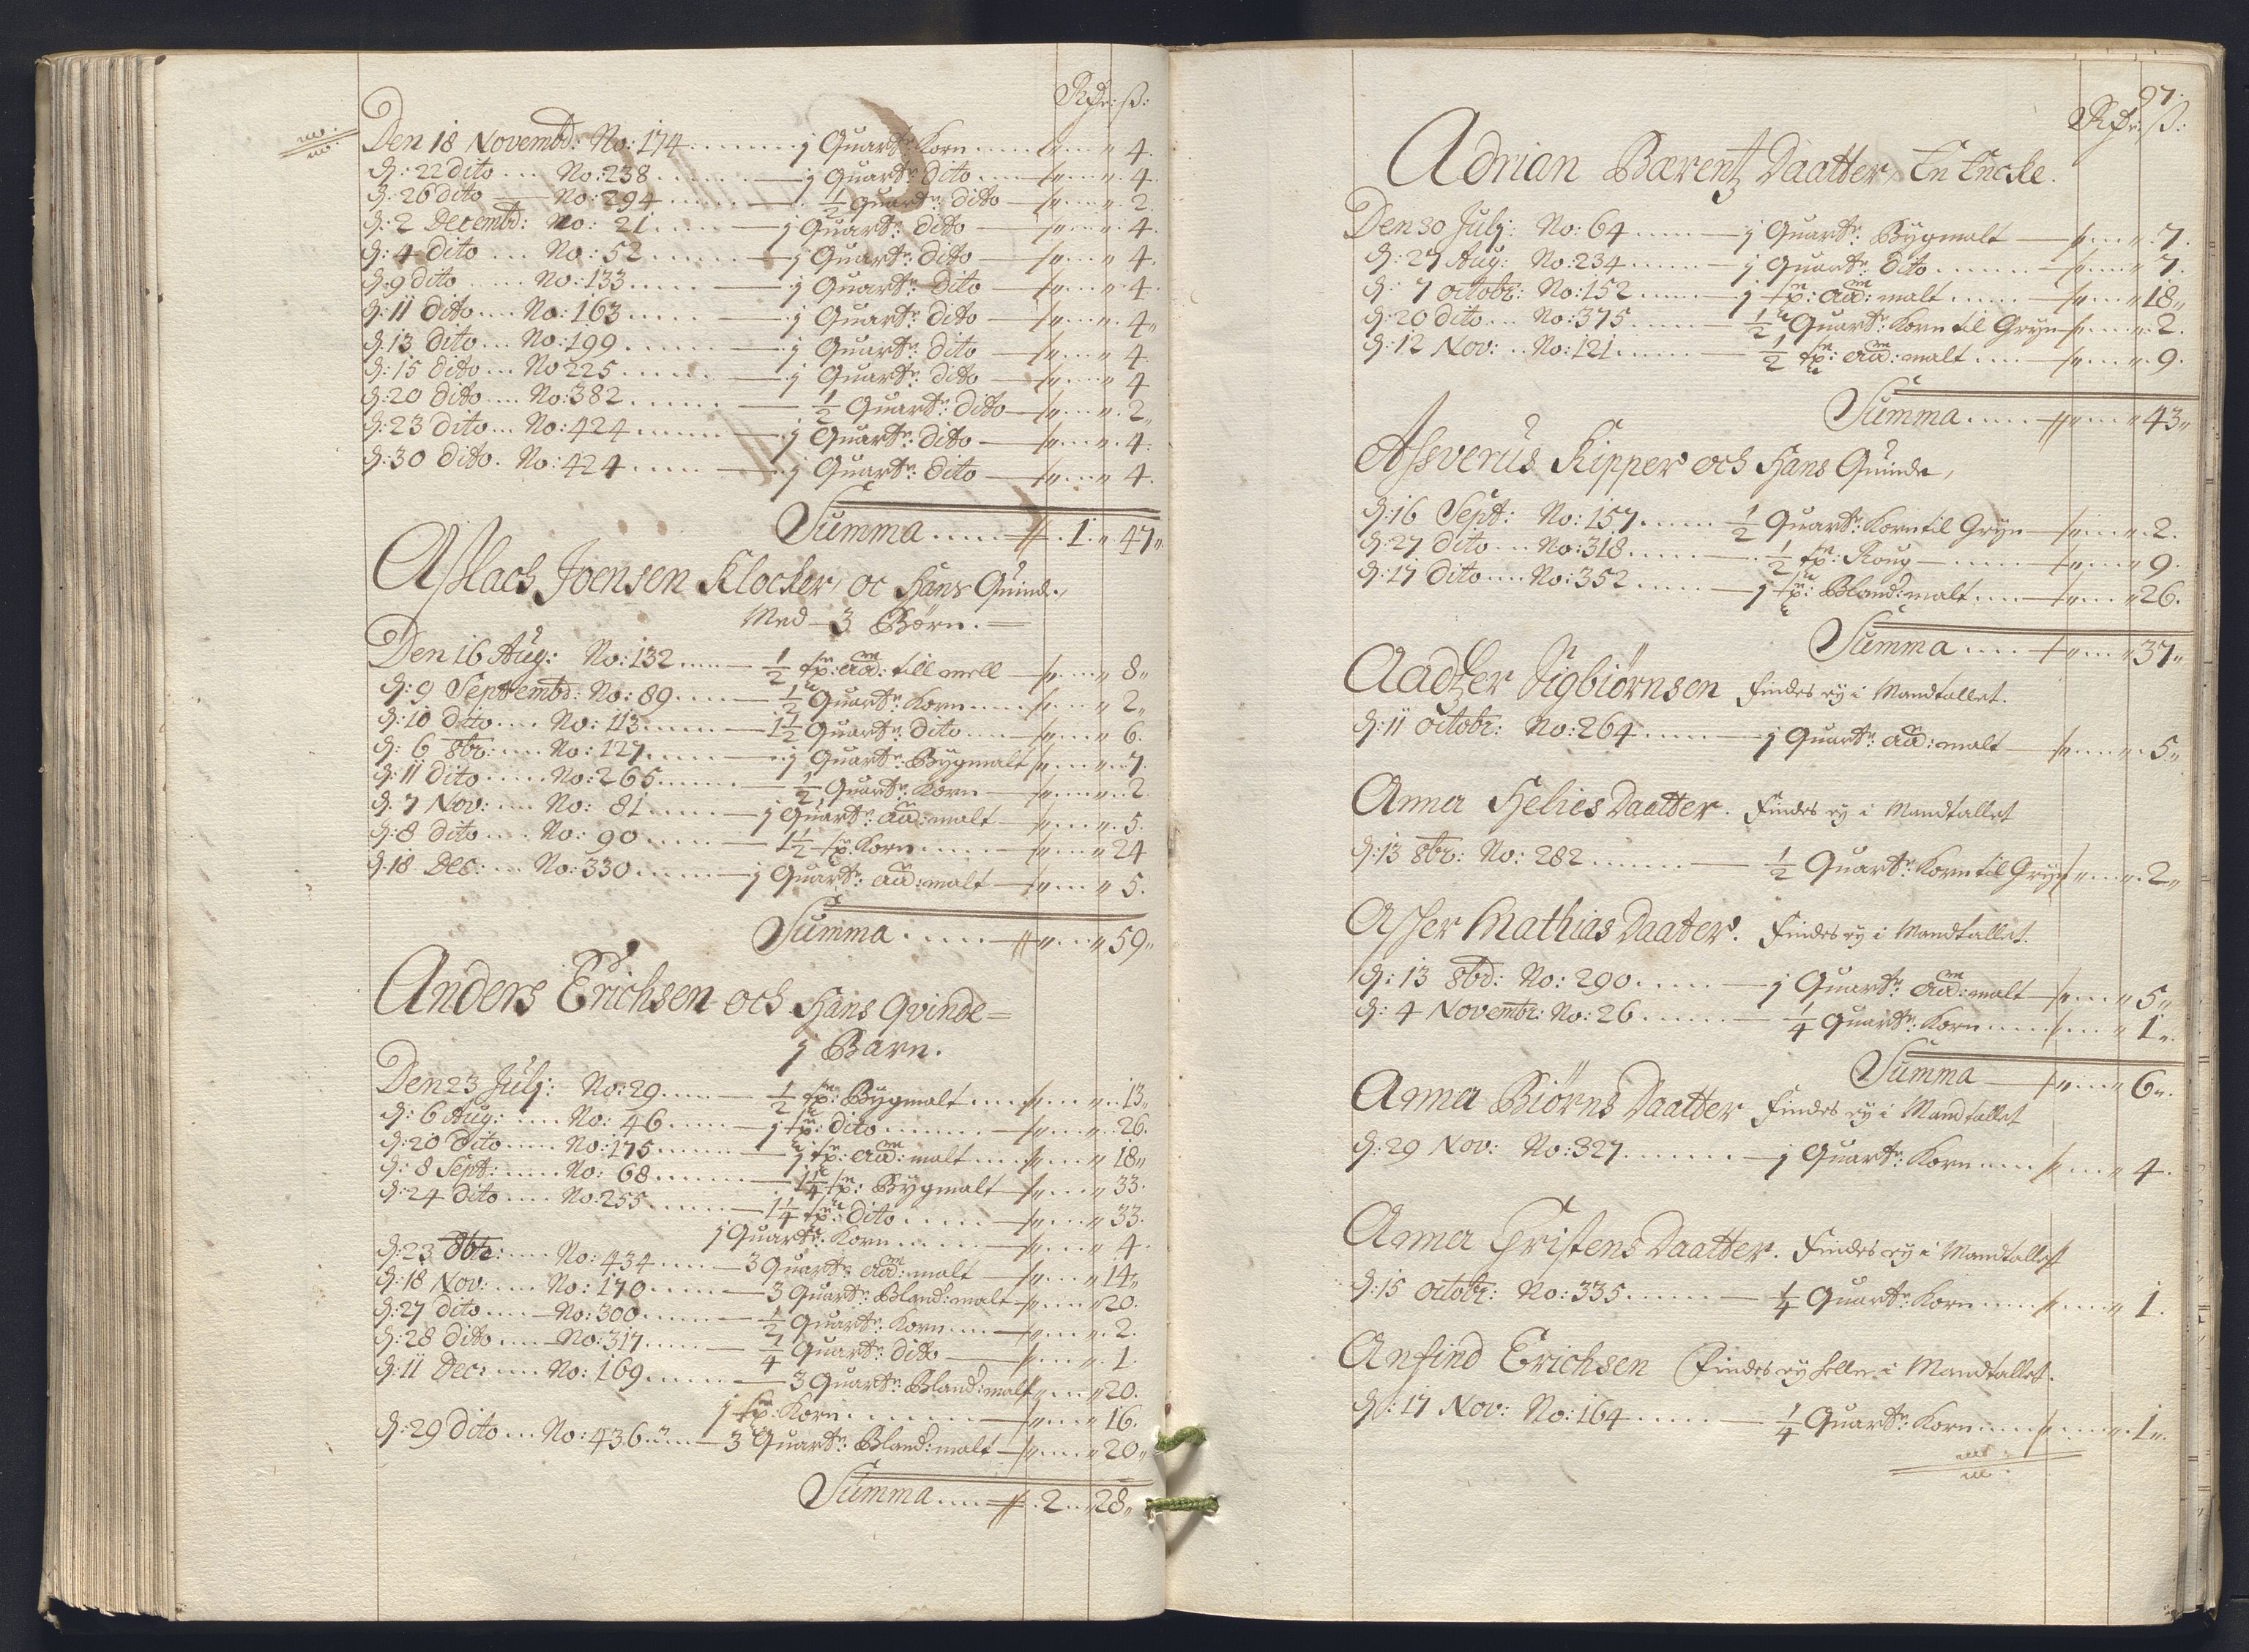 Rdr: ß:
Den 18 Novembd: No: 174 ........ j Quart: Korn .... " .... " 4.
d: 22 dito ... No: 238 ........ j Quart: dito .... " .... " 4.
d: 26 dito — No: 294 ........ ½ Quart: dito — " .... " 2.
d: 2 Decembd: No: 21 ........ j Quart: dito — " .... " 4.
d: 4 dito ... No: 52 ........ j Quart: dito — " .... " 4.
d: 9 dito .... No: 133 ........ j Quart: dito — " .... " 4.
d: 11 dito ... No: 163 ........ j Quart: dito — " .... " 4"
d: 13 dito ... No: 199 ........ j Quart: dito — " .... " 4
d: 15 dito ... No 225 ........ j Quart: dito — " .... " 4
d: 20 dito ... No: 382 ........ ½ Quart: dito — " .... " 2"
d: 23 dito ... No: 424 ........ j Quart: dito — " .... " 4.
d: 30 dito. No: 424 ........ j Quart: dito — " .... " 4.
Summa ..... 1 " 47"
Aslach Joensen Klocker, oc Hans Quinde,
Med 3 Børn. =
Den 16 Aug: No: 132 ...... ½ sp: aad: till mell — " .... " 8"
d: 9 Septembd: No: 89 ...... ½ Quart: Korn .... " .... " 2"
d: 10 dito .... No: 113 ...... 1½ Quart: dito .... " .... " 6.
d: 6 8br: .... No: 127 ...... j Quart: Bygmalt " .... " 7.
d: 11 dito ..... No: 265 ...... ½ Quart: Korn — " .... " 2.
d: 7 Nov: .... No: 81 ...... j Quart: aad: malt — " .... " 5.
d: 8 dito .... No: 90 ...... 1½ sp: Korn .... " .... " 24
d: 18 Dec: .... No: 330 ...... j Quart: aad: malt — " .... " 5.
Summa ..... " .... " 59"
Anders Erichsen och Hans Qvinde =
j Barn.
Den 23 Julj: No: 29 ...... ½ sp: Bygmalt .... " .... " 13"
d: 6 Aug: .... No: 46 ...... j sp: dito .... " .... " 26.
d: 20 dito .... No: 175 ...... j sp: aad: malt .... " .... " 18"
d: 8 Sept: .... No: 68 ...... 1¼ sp: Bygmalt — " .... " 33.
d: 24 dito .... No: 255 ...... 1¼ sp: dito .... " .... " 33.
j Quart: Korn .... " .... " 4.
d: 23 8br: .... No: 434 ...... 3 Quart: aad: malt — " .... " 14"
d: 18 Nov: .... No: 170 ...... 3 Quart: Bland: malt — " .... " 20.
d: 27 dito .... No: 300 ...... ½ Quart: Korn .... " .... " 2.
d: 28 dito .... No: 317 ...... ¼ Quart: dito — " .... " 1.
d: 11 Dec: .... No: 169 ...... 3 Quart: Bland: malt " .... " 20.
j sp: Korn .... " .... " 16.
d: 29 dito ... No: 436 ...... 3 Quart: Bland: malt — " .... " 20"
Summa ..... 2 .. 28"
97.
Rdr: ß:
Adrian Bærentz Daatter, En Encke.
Den 30 Julj: No: 64 ...... j Quart: Bygmalt — " .... " 7.
d: 27 Aug: No: 234 ...... j Quart: dito .... " .... " 7.
d: 7 octobr: No: 152 ...... j sp: aad: malt .... " .... " 18"
d: 20 dito ... No: 375 ...... ½ Quart: Korn til Gryn " .... " 2.
d: 12 Nov: .. No: 121 ...... ½ sp: aad: malt .... " .... " 9.
Summa ..... " .... " 43"
Assverus Kipper och Hans Quinde,
d: 16 Sept: No: 157 ...... ½ Quart: Korn til Gryn — " .... " 2.
d: 27 dito ... No: 318 ...... ½ sp: Roug — .... " .... " 9.
d: 17 dito .... No: 352 ...... j sp: Bland: malt .... " .... " 26.
Summa ..... " .... " 37"
Aadzer Sigbiörnsen findes ey i Mandtallet.
d: 11 octobr: No: 264 ...... j Quart: aad: malt — " .... " 5"
Anna Helies Daatter. Findes ey i Mandtallet
d: 13 8br: No: 282 ...... ½ Quart: Korn til Gryn " .... " 2"
Asser Mathias Daatter. Findes ey i Mandtallet.
d: 13 8bd: No: 290 ...... j Quart: aad: malt — " .... " 5"
d: 4 Novembr: No: 26 ...... ¼ Quart: Korn .... " .... " 1".
Summa — " .... " 6".
Anna Biörns Daatter findes ey i Mandtallet
d: 29 Nov: No: 327 ...... j Quart: Korn .... " .... " 4.
Anna Cristens Daatter. Findes ey i Mandtallet
d: 15 octobr: No: 335 ...... ¼ Quart: Korn .... " .... " 1.
Anfind Erichsen Findes ey heller i Mandtallet.
d: 17 Nov: No: 164 ...... ¼ Quart: Korn .... " .... " 1".